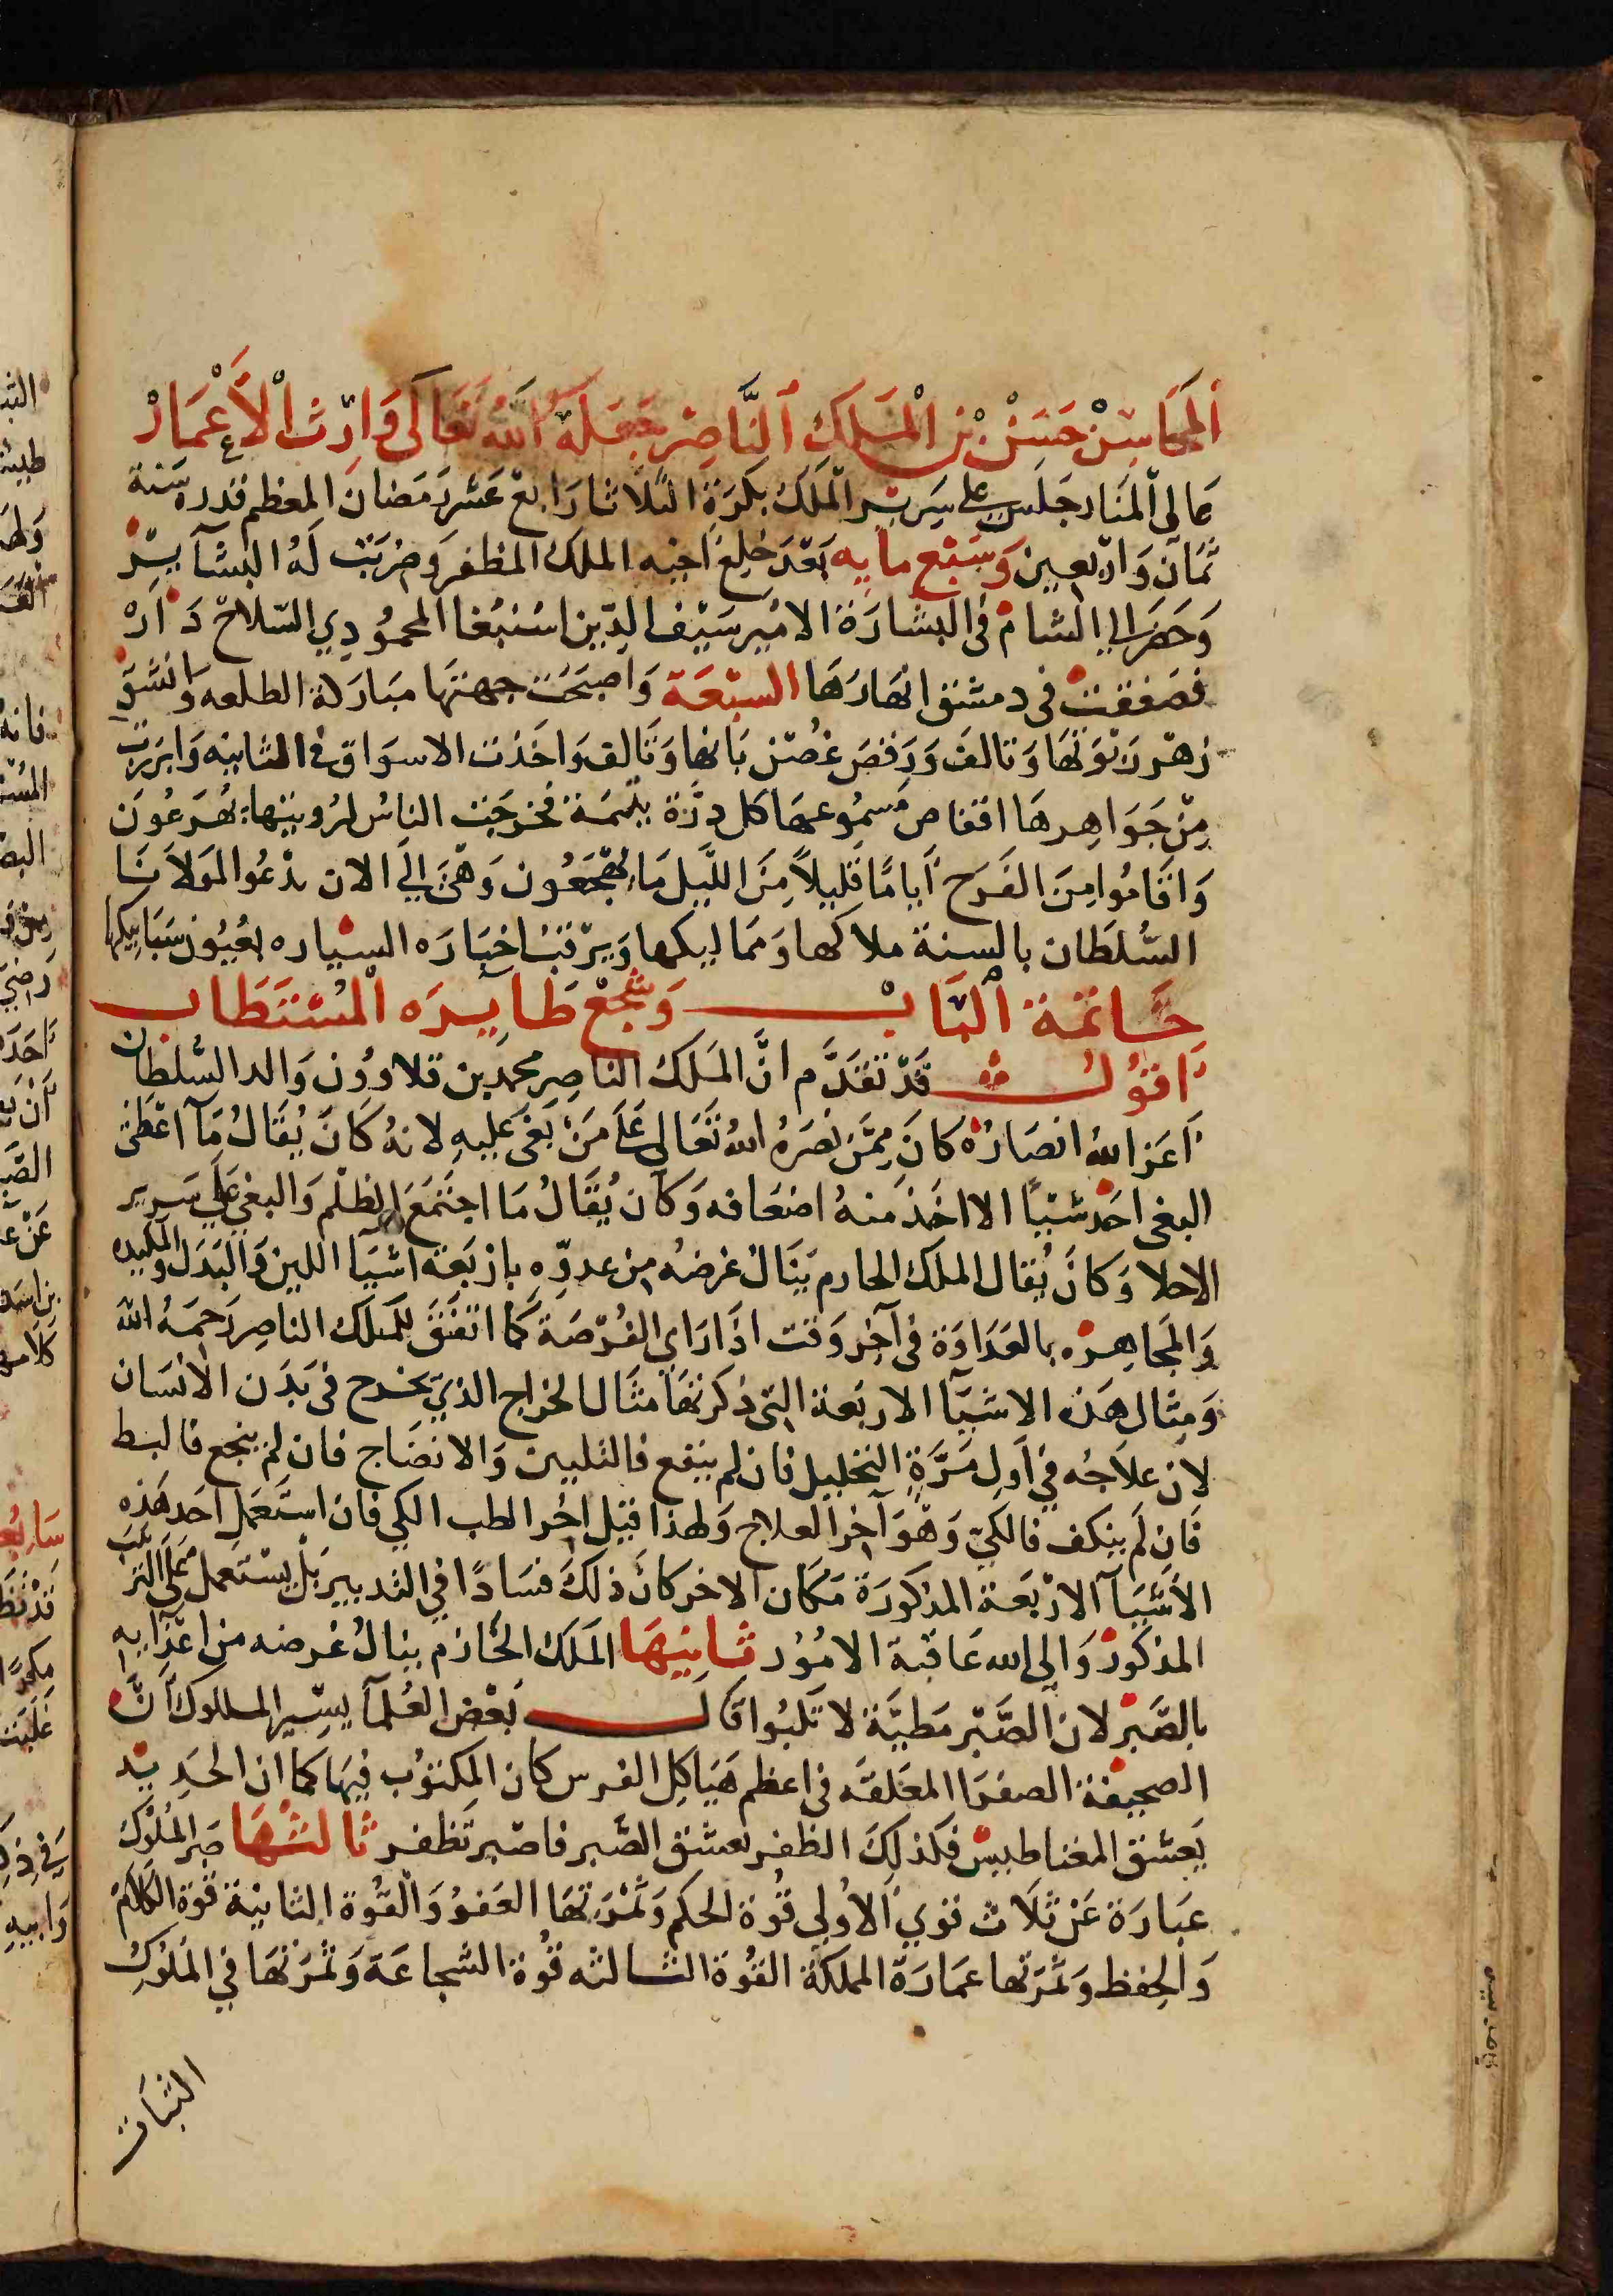 المحاسن حسن بن الملك الناصر جعله الله تعالى وارث الأعمار
عالى المنار جلس على سرير الملك بكرة الثلاثا رابع عشر رمضان المعظم قدره سنة
ثمان واربعين وسبع مايه بعد خلع اخيه الملك المظفر وضربت له البشآير
وحضر الي الشام فى البشارة الامير سيف الدين اسنبغا المحمودي السلاح دار
فصفقت فى دمشق انهارها السبعة واصبحت جبهتها مباركة الطلعه وانشق
زهر ربوتها وتالف ورقص غصن بانها وتالق واخذت الاسواق فى الثانيه وابرزت
من جواهرها اقفاص مسموعها كل درة يتيمة فخرجت الناس لرويتها يهرعون
واقاموا من الفرح أياما قليلاً من الليل ما يهجعون وهى إلي الان تدعوا لمولانا
السلطان بالسنة ملاكها ومماليكها ويرتب اخباره السياره بعيون شبابيكها
خاتمة الباب وشجع طآيره المستطاب
اقول قد تقدم ان الملك الناصر محمد بن قلاوون والد السلطان
اعز الله انصاره كان ممن نصره الله تعالى على من بغى عليه لانه كان يقال مآ اعطى
البغى احد شيًا الا اخذ منه اضعافه وكان يقال ما اجتمع الظلم والبغى على سرير
الاخلا وكان يقال الملك الحازم ينال غرضه من عدوه باربعة اشيآ اللين والبدل والمكيده
والمجاهره بالعداوة فى آخر وقت اذا راي الفرصة كما اتفق للملك الناصر رحمه الله
ومثال هذه الاشيآ الاربعة التى ذكرتها مثال الخراج الذي يخرج فى بدن الانسان
لان علاجه في أول مرة التحليل فان لم ينفع فالتليين والانضاج فان لم ينجع فالبط
فان لم ينكف فالكي وهو آخر العلاج ولهذا قيل اخر الطب الكي فان استعمل احد هذه
الأشيآ الاربعة المذكورة مكان الاخر كان ذلك فسادًا في التدبير بل يستعمل على الترتيب
المذكور والى الله عاقبة الامور ثانيها الملك الحازم ينال غرضه من اعدايه
بالصبر لان الصبر مطية لا تكبوا قال بعض العلمآ بسير الملوك ان
الصحيفة الصفرا المعلقه فى اعظم هياكل الفرس كان المكتوب فيها كما ان الحديد
يعشق المغناطيس فكذلك الظفر يعشق الصبر فاصبر تظفر ثالثها صبر الملوك
عبارة عن ثلاث قوي الأولى قوة الحكم وثمرتها العفو والقوة الثانية قوة الكلام
والحفظ وثمرتها عمارة المملكة القوة الثالثه قوة الشجاعة وثمرتها في الملوك
الثبات